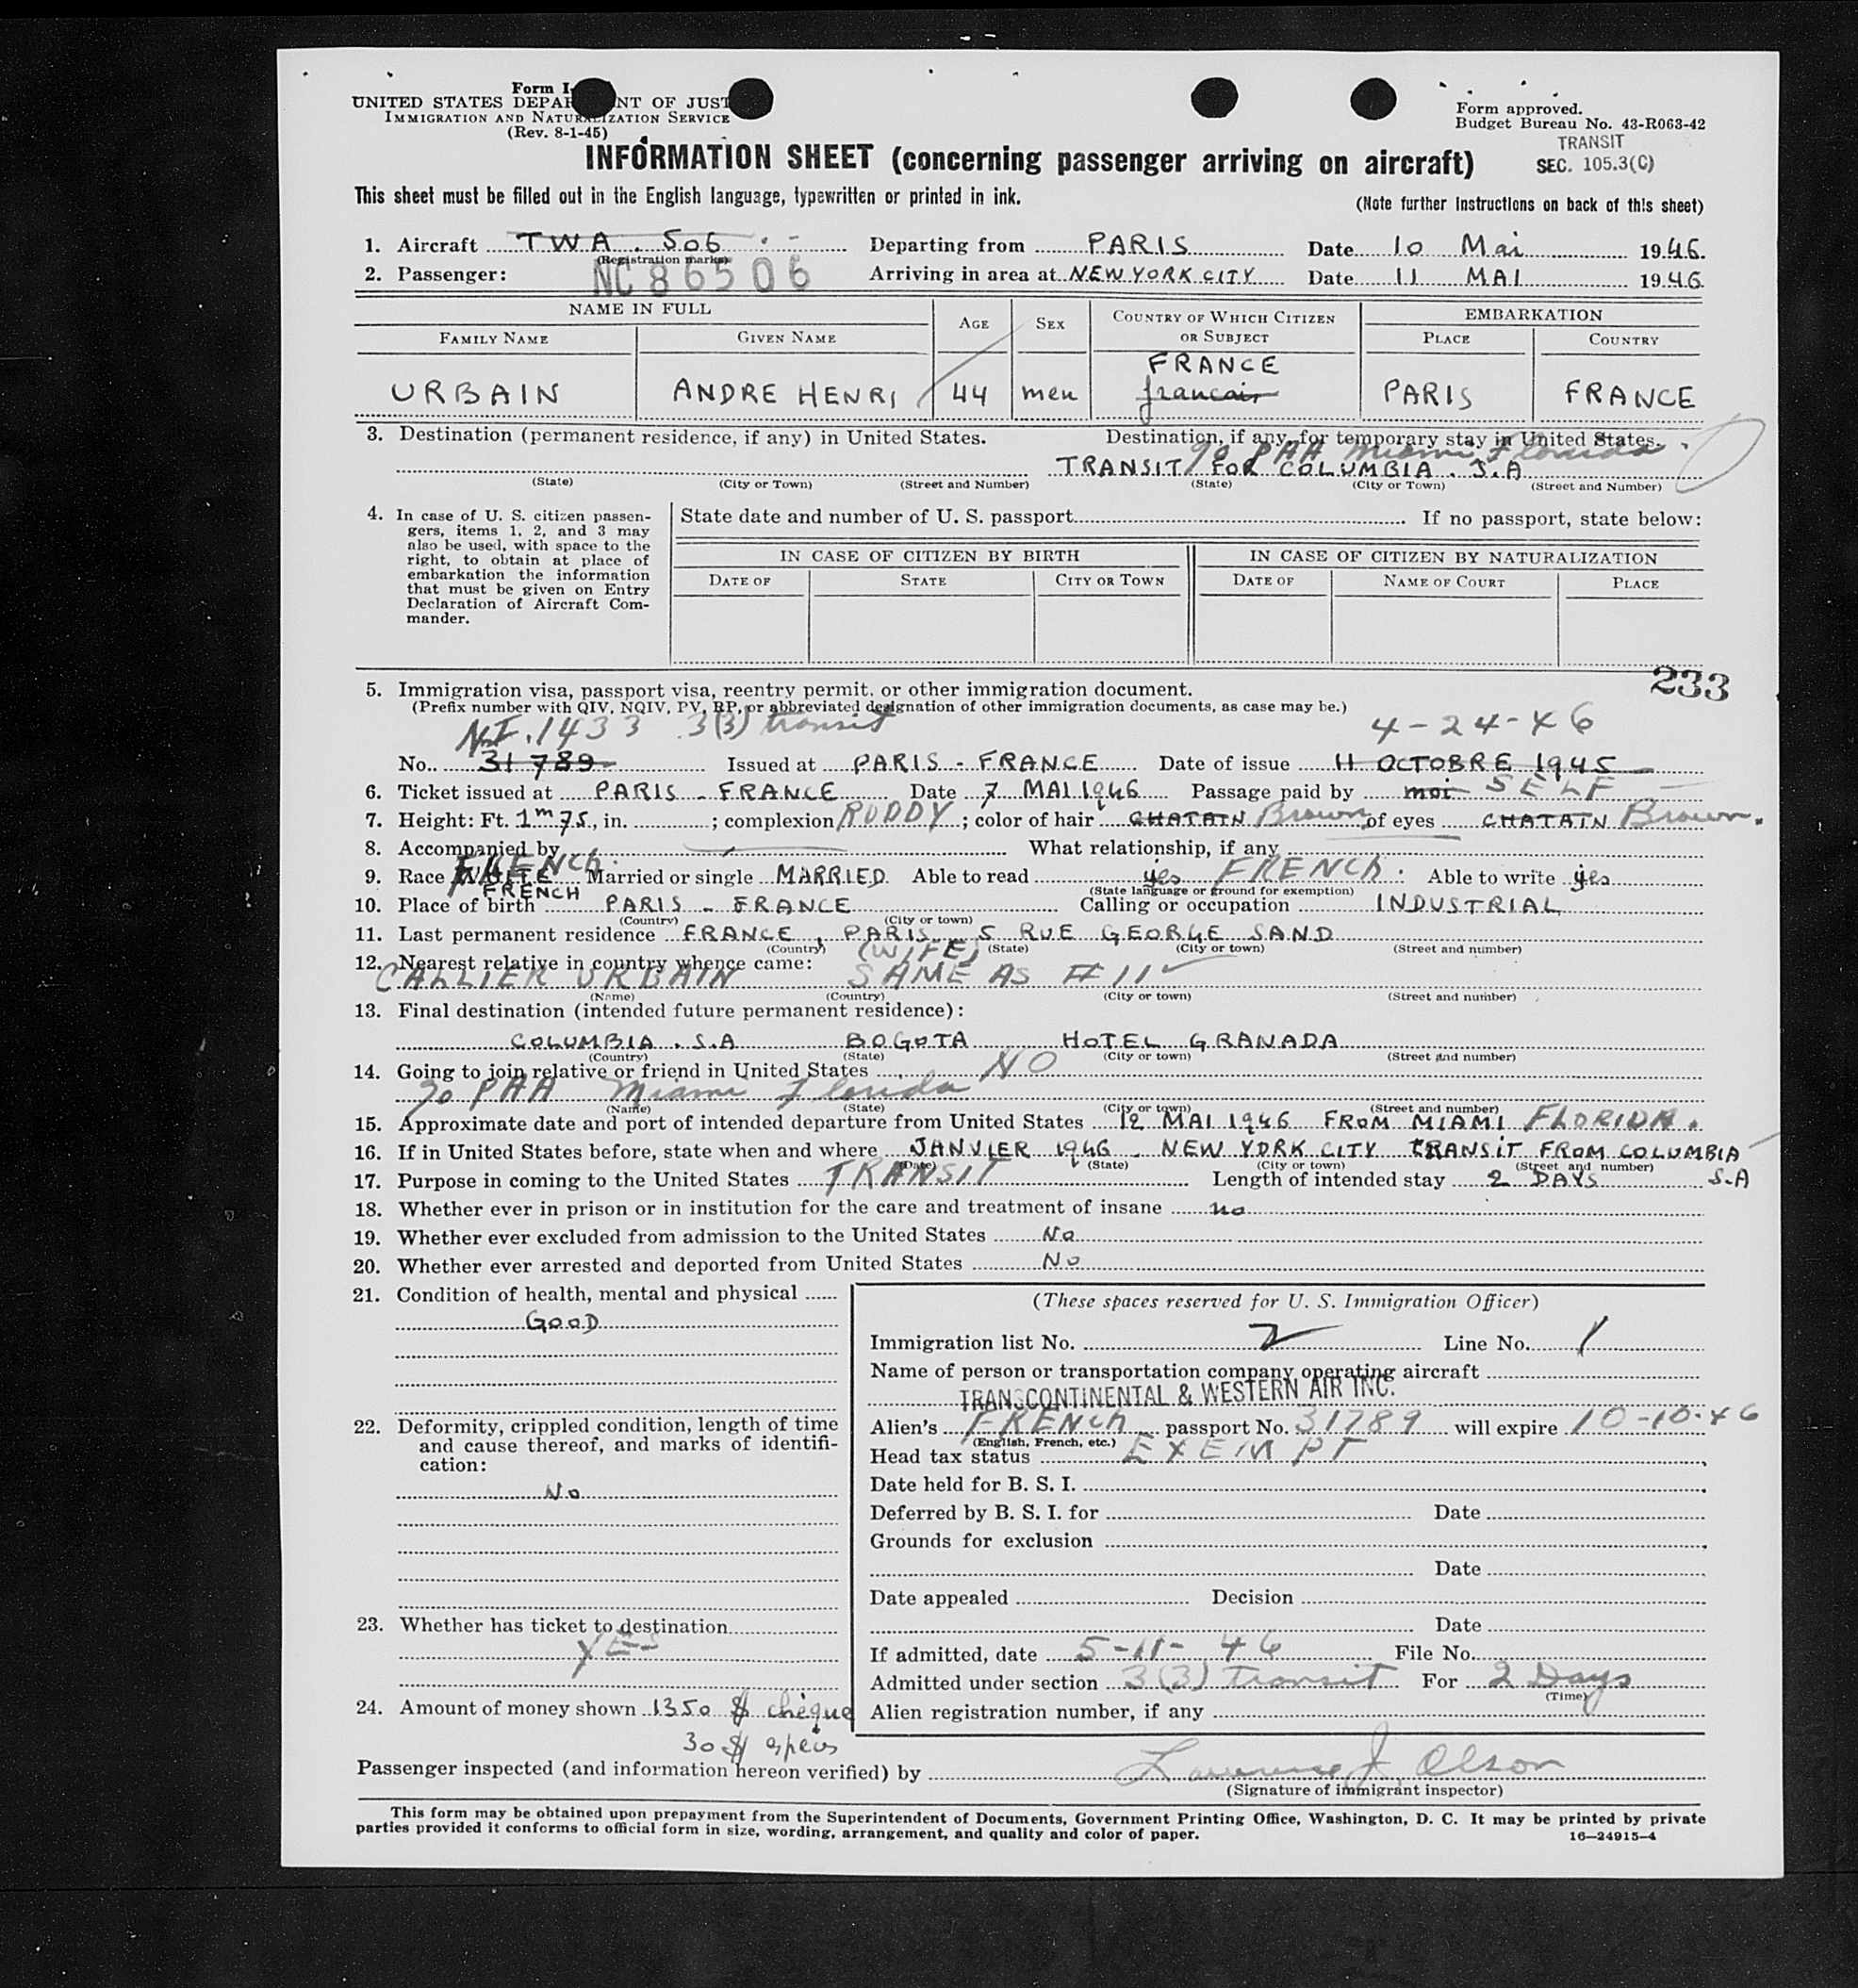 Form I-
UNITED STATES DEPAR NT OF JUST
IMMIGRATION AND NATURALIZATION SERVICE
(Rev. 8-1-45)
Form approved.
Budget Bureau No. 43-R063-42
TRANSIT
SEC. 105.3(C)
INFORMATION SHEET (concerning passenger arriving on aircraft)
This sheet must be filled out in the English language, typewritten or printed in ink.
(Note further instructions on back of this sheet)
1. Aircraft TWA . 506 Departing from PARIS Date 10 Mai 1946.
(Registration marks)
2. Passenger: NC 86506 Arriving in area at NEW YORK CITY Date 11 MAI 1946
NAME IN FULL AGE SEX COUNTRY OF WHICH CITIZEN OR SUBJECT EMBARKATION
FAMILY NAME GIVEN NAME PLACE COUNTRY
FRANCE
URBAIN ANDRE HENRI 44 men francais PARIS FRANCE
3. Destination (permanent residence, if any) in United States. Destination, if any, for temporary stay in United States.
% PAA Miami Florida
TRANSIT FOR COLUMBIA . S.A
(State) (City or Town) (Street and Number) (State) (City or Town) (Street and Number)
4. In case of U. S. citizen passengers, items 1, 2, and 3 may
also be used, with space to the
right, to obtain at place of
embarkation the information
that must be given on Entry
Declaration of Aircraft Commander.
State date and number of U. S. passport If no passport, state below:
IN CASE OF CITIZEN BY BIRTH IN CASE OF CITIZEN BY NATURALIZATION
DATE OF STATE CITY OR TOWN DATE OF NAME OF COURT PLACE
233
5. Immigration visa, passport visa, reentry permit, or other immigration document.
(Prefix number with QIV, NQIV, PV, RP, or abbreviated designation of other immigration documents, as case may be.)
N.I. 1433 3(3) transit 4-24-46
No. 31789 Issued at PARIS - FRANCE Date of issue 11 OCTOBRE 1945
6. Ticket issued at PARIS - FRANCE Date 7 MAI 1946 Passage paid by moi SELF
7. Height: Ft. 1m75, in. ; complexion RUDDY ; color of hair CHATAIN Brown of eyes CHATAIN Brown.
8. Accompanied by What relationship, if any
9. Race WHITE FRENCH Married or single MARRIED Able to read yes FRENCH. Able to write yes
FRENCH (State language or ground for exemption)
10. Place of birth PARIS - FRANCE Calling or occupation INDUSTRIAL
(Country) (City or town)
11. Last permanent residence FRANCE, PARIS 5 RUE GEORGE SAND
(Country) (State) (City or town) (Street and number)
12. Nearest relative in country whence came: (WIFE)
CALLIER URBAIN SAME AS #11
(Name) (Country) (City or town) (Street and number)
13. Final destination (intended future permanent residence):
COLUMBIA . S.A BOGOTA HOTEL GRANADA
(Country) (State) (City or town) (Street and number)
14. Going to join relative or friend in United States NO
% PAA Miami Florida
(Name) (State) (City or town) (Street and number)
15. Approximate date and port of intended departure from United States 12 MAI 1946 FROM MIAMI FLORIDA.
16. If in United States before, state when and where JANVIER 1946 - NEW YORK CITY TRANSIT FROM COLUMBIA
(Date) (State) (City or town) (Street and number)
17. Purpose in coming to the United States TRANSIT Length of intended stay 2 DAYS S.A
18. Whether ever in prison or in institution for the care and treatment of insane no
19. Whether ever excluded from admission to the United States No
20. Whether ever arrested and deported from United States No
21. Condition of health, mental and physical
GOOD
22. Deformity, crippled condition, length of time
and cause thereof, and marks of identification:
No
23. Whether has ticket to destination
YES
24. Amount of money shown 1350 $ chèque
30 $
(These spaces reserved for U. S. Immigration Officer)
Immigration list No. 2 Line No. 1
Name of person or transportation company operating aircraft
TRANSCONTINENTAL & WESTERN AIR INC.
Alien's FRENCH passport No. 31789 will expire 10-10-46
(English, French, etc.)
Head tax status EXEMPT
Date held for B. S. I.
Deferred by B. S. I. for Date
Grounds for exclusion
Date
Date appealed Decision
Date
If admitted, date 5-11-46 File No.
Admitted under section 3(3) transit For 2 Days
(Time)
Alien registration number, if any
Passenger inspected (and information hereon verified) by Lawrence J. Olson
(Signature of immigrant inspector)
This form may be obtained upon prepayment from the Superintendent of Documents, Government Printing Office, Washington, D. C. It may be printed by private
parties provided it conforms to official form in size, wording, arrangement, and quality and color of paper.
16—24915-4